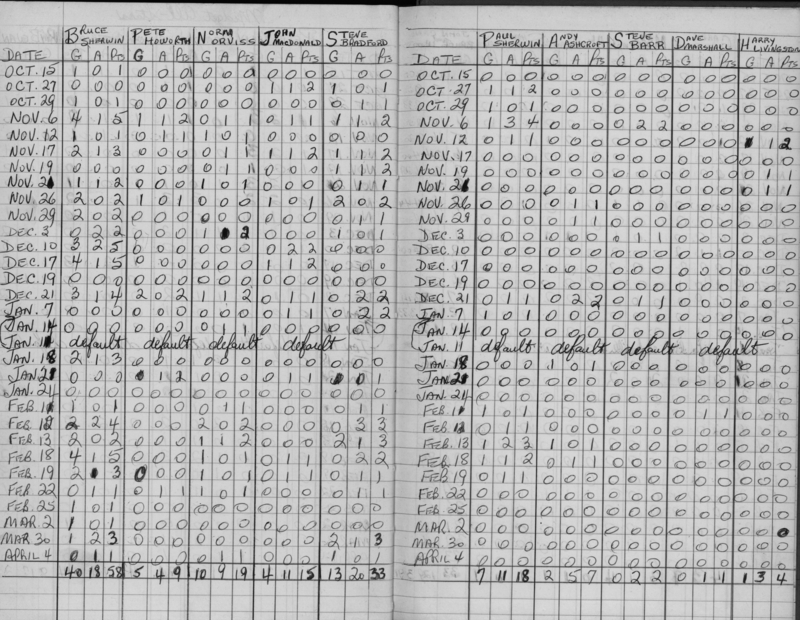 BRUCE SHERWIN PETE HOWORTH NORM ORVISS JOHN MACDONALD STEVE BRADFORD
DATE G A Pts G A Pts G A Pts G A Pts G A Pts
OCT. 15 1 0 1 0 0 0 0 0 0 0 0 0 0 0 0
OCT. 27 0 0 0 0 0 0 0 0 0 1 1 2 1 0 1
OCT. 29 1 0 1 0 0 0 0 0 0 0 0 0 0 1 1
NOV. 6 4 1 5 1 1 2 0 1 1 0 1 1 1 1 2
NOV. 12 1 0 1 0 1 1 1 0 1 0 0 0 0 0 0
NOV. 17 2 1 3 0 0 0 0 1 1 1 1 2 1 1 2
NOV. 19 0 0 0 0 0 0 0 1 1 0 0 0 1 1 2
NOV. 21 1 1 2 0 0 0 1 0 1 0 0 0 0 1 1
NOV. 26 2 0 2 1 0 1 0 0 0 1 0 1 2 0 2
NOV. 29 2 0 2 0 0 0 0 0 0 0 0 0 0 1 1
DEC. 3 0 2 2 0 0 0 1 2 0 0 0 0 1
DEC. 10 3 2 5 0 0 0 0 0 0 0 2 2 0 0 0
DEC. 17 4 1 5 0 0 0 0 0 0 1 1 2 0 0 0
DEC. 19 0 0 0 0 0 0 0 0 0 0 0 0 0 0 0
DEC. 21 3 1 4 2 0 2 1 1 2 0 1 1 0 2 2
JAN. 7 0 0 0 0 0 0 0 0 0 0 1 1 0 2 2
JAN. 14 0 0 0 0 0 0 0 1 1 0 0 0 0 0 0
JAN. 11 default default default default
JAN. 18 2 1 3 0 0 0 0 0 0 0 0 0 0 0 0
JAN 21 0 0 0 1 2 0 0 0 0 1 1 0 1
JAN. 24 0 0 0 0 0 0 0 0 0 0 0 0 0 0 0
FEB. 11 1 0 1 0 0 0 0 1 1 0 0 0 0 1 1
FEB. 12 2 2 4 0 0 0 2 0 2 0 0 0 0 3 3
FEB. 13 2 0 2 0 0 0 1 1 2 0 0 0 2 1 3
FEB. 18 4 1 5 0 0 0 1 0 1 0 1 1 0 2 2
FEB. 19 2 3 0 0 0 1 0 1 0 1 1 0 1 1
FEB. 22 0 1 1 0 1 1 1 0 1 0 0 0 0 1 1
FEB. 25 1 0 1 0 0 0 0 0 0 0 0 0 0 0 0
MAR. 2 1 0 1 0 0 0 0 0 0 0 0 0 0 0 0
MAR. 30 1 2 3 0 0 0 0 0 0 0 0 0 2 1 3
APRIL 4 0 1 1 0 0 0 0 1 1 0 0 0 1 0 1
40 18 58 5 4 9 10 9 19 4 11 15 13 20 33
PAUL SHERWIN ANDY ASHCROFT STEVE BARR DAVE MARSHALL HARRY LIVINGSTON
DATE G A Pts G A Pts G A Pts G A Pts G A Pts
OCT. 15 0 0 0 0 0 0 0 0 0 0 0 0 0 0 0
OCT. 27 1 1 2 0 0 0 0 0 0 0 0 0 0 0 0
OCT. 29 1 0 1 0 0 0 0 0 0 0 0 0 0 0 0
NOV. 6 1 3 4 0 0 0 0 2 2 0 0 0 0 0 0
NOV. 12 0 1 1 0 0 0 0 0 0 0 0 0 1 2
NOV. 17 0 0 0 0 0 0 0 0 0 0 0 0 0 0 0
NOV. 19 0 0 0 0 0 0 0 0 0 0 0 0 0 1 1
NOV. 21 0 0 0 0 0 0 0 0 0 0 0 0 0 1 1
NOV. 26 0 0 0 0 1 1 0 0 0 0 0 0 0 0 0
NOV. 29 0 0 0 0 1 1 0 0 0 0 0 0 0 0 0
DEC. 3 0 0 0 0 0 0 0 1 1 0 0 0 0 0 0
DEC. 10 0 0 0 0 0 0 0 0 0 0 0 0 0 0 0
DEC. 17 0 0 0 0 0 0 0 0 0 0 0 0 0 0 0
DEC. 19 0 0 0 0 0 0 0 0 0 0 0 0 0 0 0
DEC. 21 0 1 1 0 2 2 0 1 1 0 0 0 0 0 0
JAN. 7 1 0 1 0 0 0 0 0 0 0 0 0 0 0 0
JAN. 14 0 0 0 0 0 0 0 0 0 0 0 0 0 0 0
JAN. 11 default default default default
JAN. 18 0 0 0 1 0 1 0 0 0 0 0 0 0 0 0
JAN. 21 0 0 0 0 0 0 0 0 0 0 0 0 0 0 0
JAN. 24 0 0 0 0 0 0 0 0 0 0 0 0 0 0 0
FEB. 11 1 0 1 0 0 0 0 0 0 0 1 1 0 0 0
FEB. 12 0 1 1 0 0 0 0 0 0 0 0 0 0 0 0
FEB. 13 1 2 3 1 0 1 0 0 0 0 0 0 0 0 0
FEB. 18 1 1 2 0 1 1 0 0 0 0 0 0 0 0 0
FEB 19 0 1 1 0 0 0 0 0 0 0 0 0 0 0 0
FEB. 22 0 0 0 0 0 0 0 0 0 0 0 0 0 0 0
FEB. 25 0 0 0 0 0 0 0 0 0 0 0 0 0 0 0
MAR. 2 0 0 0 0 0 0 0 0 0 0 0 0 0 0 0
MAR. 30 0 0 0 0 0 0 0 0 0 0 0 0 0 0 0
APRIL 4 0 0 0 0 0 0 0 0 0 0 0 0 0 0 0
7 11 18 2 5 7 0 2 2 0 1 1 1 3 4